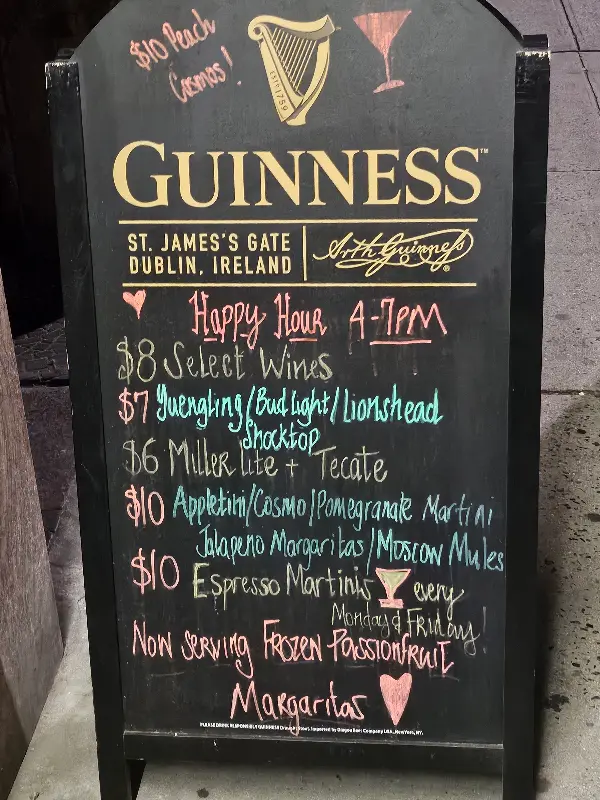 $10 Peach
Cosmos!
ESTD 1759
GUINNESS™
ST. JAMES'S GATE
DUBLIN, IRELAND
Arth Guinness®
Happy Hour 4-7PM
$8 Select Wines
$7 Yuengling/Bud Light/Lionshead
Shocktop
$6 Miller lite + Tecate
$10 Appletini/Cosmo/Pomegranate Martini
Jalapeno Margaritas/Moscow Mules
$10 Espresso Martinis every
Monday & Friday!
Now serving Frozen Passionfruit
Margaritas
PLEASE DRINK RESPONSIBLY. GUINNESS Draught Stout. Imported by Diageo Beer Company USA, New York, NY.